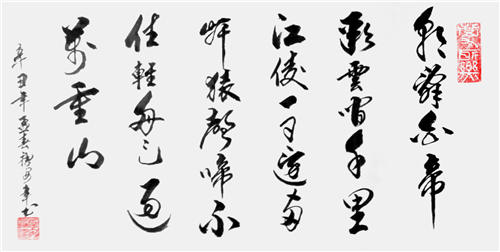 朝辭白帝
彩雲間千里
江陵一日還兩
岸猿聲啼不
住輕舟已過
萬重山
辛丑年孟春